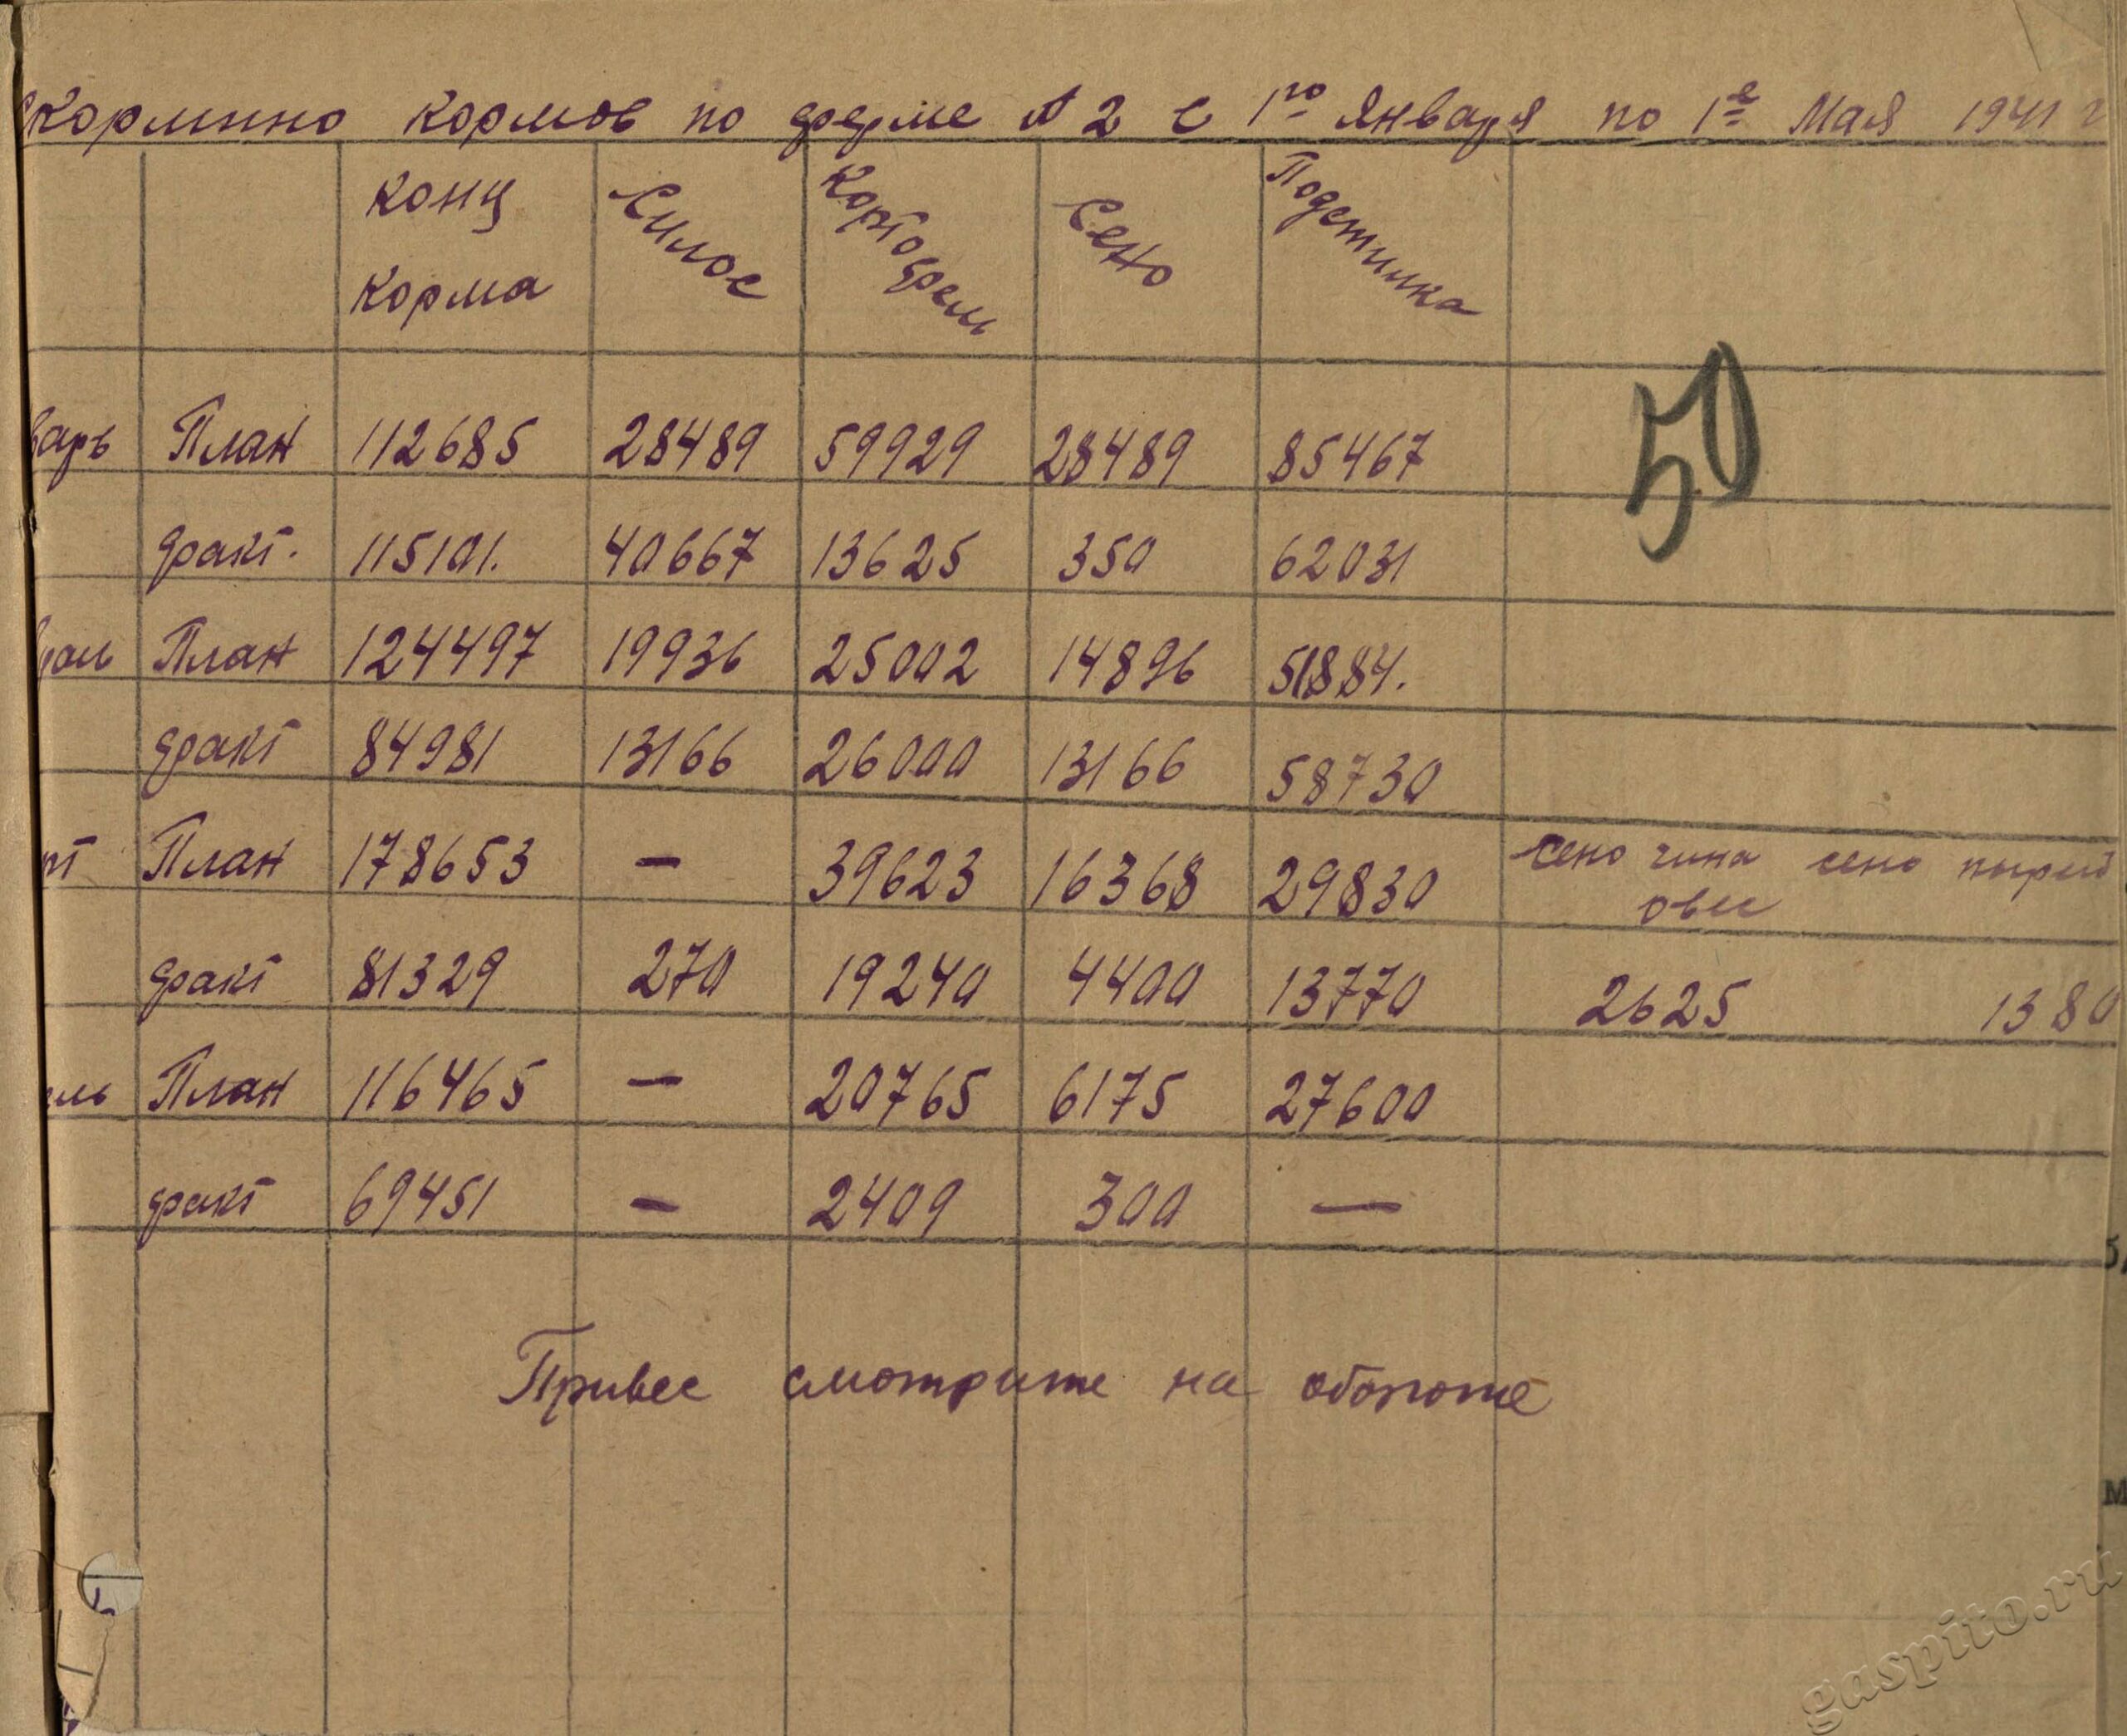 скормлино кормов по ферме № 2 с 1го Января по 1е Мая 1941 г
конц корма Силос Картофель Сено Подстилка
50
варь План 112685 28489 59929 28489 85467
факт. 115101. 40667 13625 350 62031
План 124497 19936 25002 14896 51884.
факт 84981 13166 26000 13166 58730
рт План 178653 — 39623 16368 29830 сено чина овес сено пырей
факт 81329 270 19240 4400 13770 2625 1380
ель План 116465 — 20765 6175 27600
факт 69451 — 2409 300 —
Привес смотрите на обороте
gaspito.ru